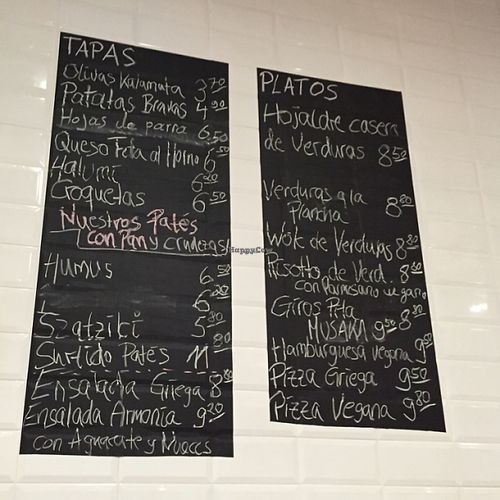 TAPAS
Olivas Kalamata 3,70
Patatas Bravas 4,90
Hojas de parra 6,50
Queso Feta al Horno 6,50
Halumi 6,20
Croquetas 6,50
Nuestros Patés
con Pan y crudezas
HUMUS 6,50
6,20
Szatziki 5,80
Surtido Patés 11,80
Ensalada Griega 8,80
Ensalada Armonia 9,20
con Aguacate y Nueces
PLATOS
Hojaldre casera
de Verduras 8,50
Verduras a la
Plancha 8,80
Wok de Verduras 8,80
Risotto de Verd. 8,50
con Parmesano vegano
Giros Pita 8,80
MUSAKA 9,50
Hamburguesa Vegana 9,50
Pizza Griega 9,50
Pizza Vegana 9,80
HappyCow